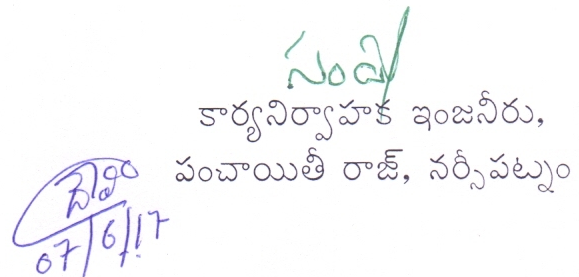 సం
కార్యనిర్వాహక ఇంజనీరు,
పంచాయితీ రాజ్, నర్సీపట్నం
07/6/17